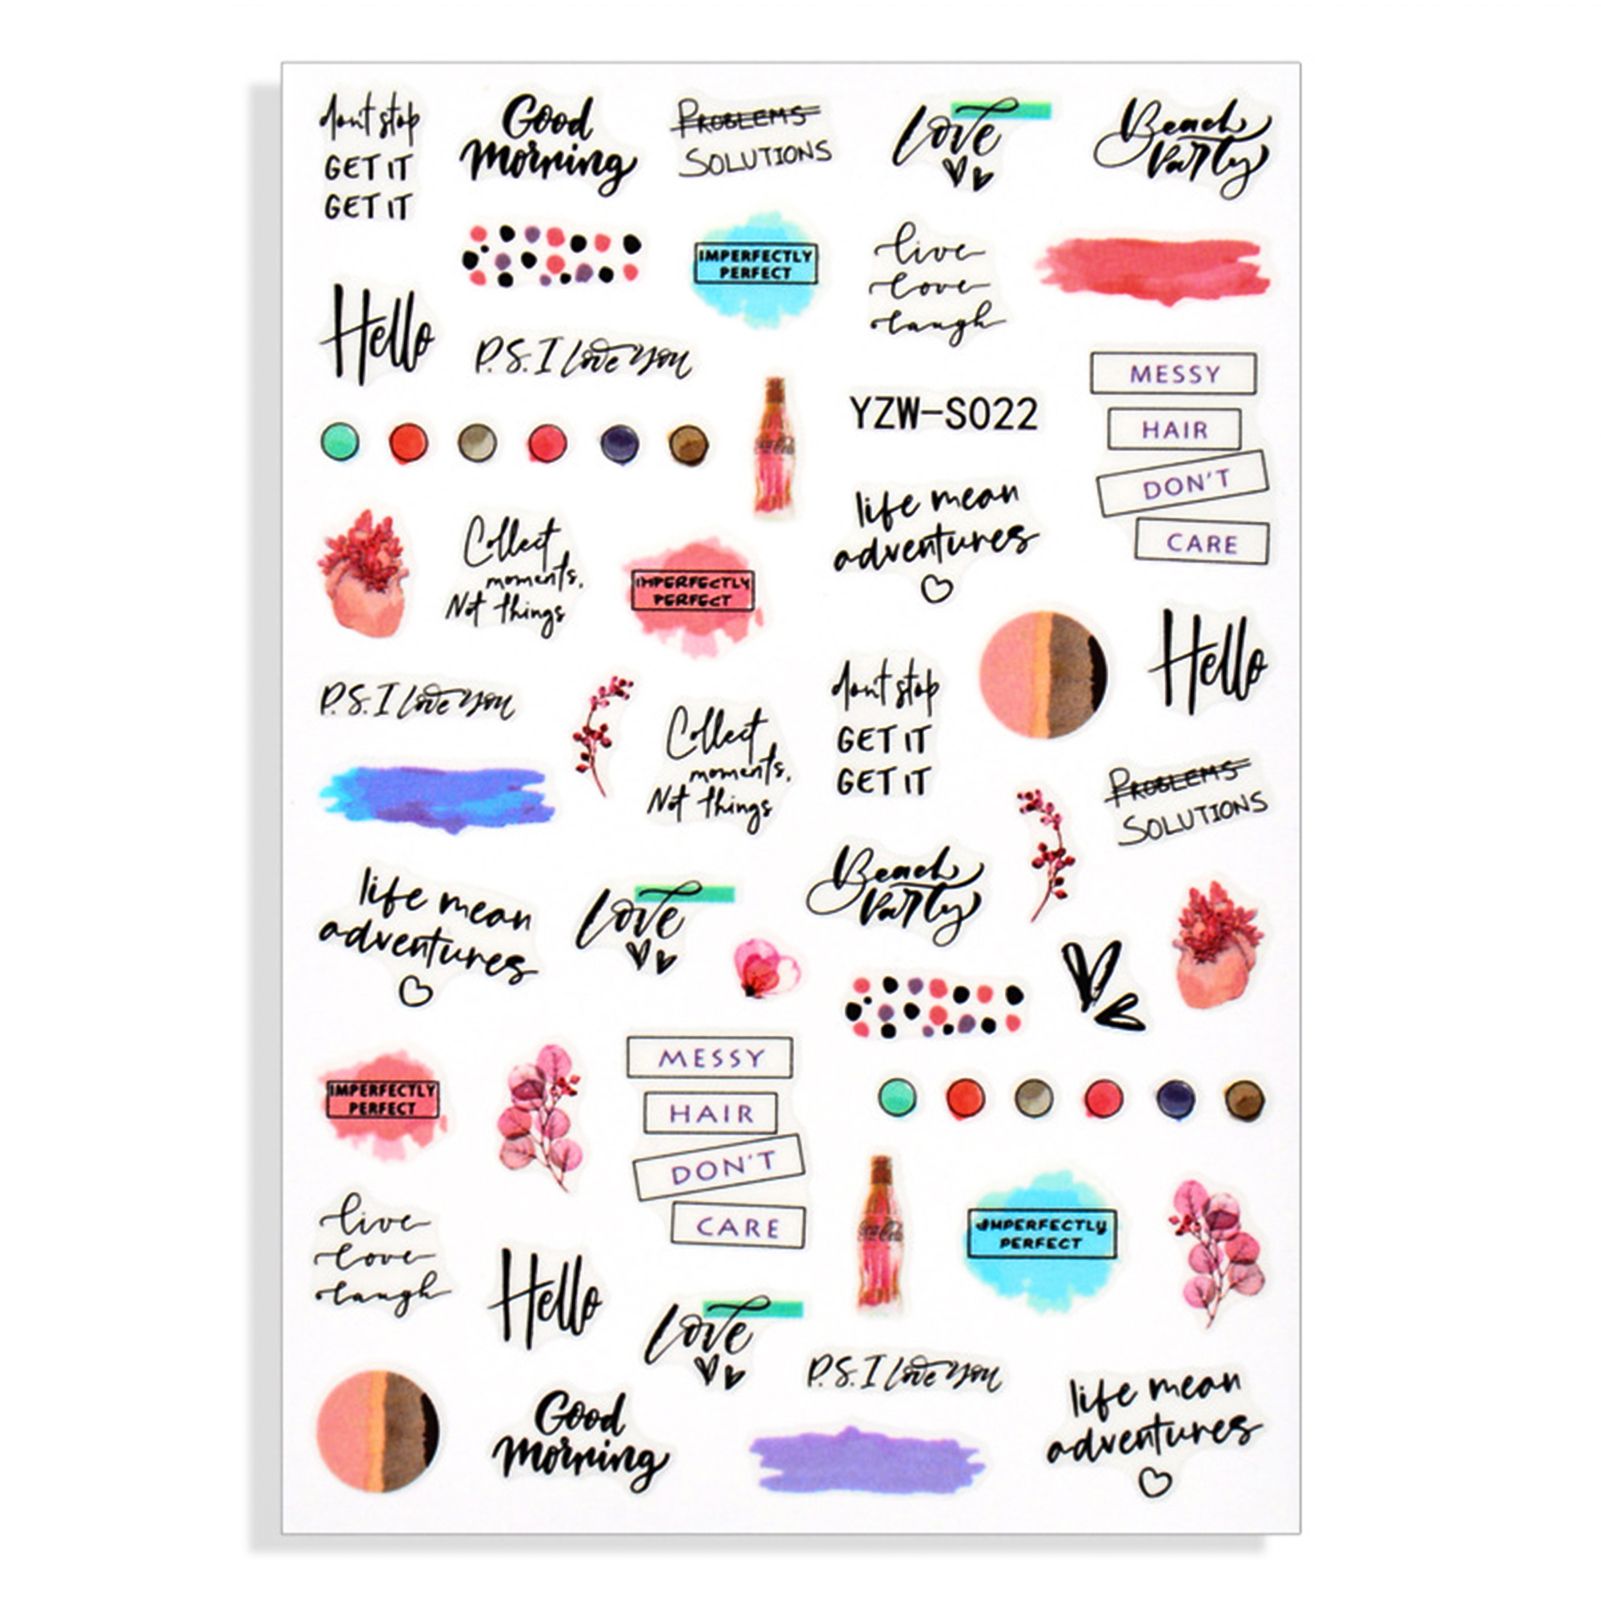 dont stop
GET IT
GET IT
Good
Morning
PROBLEMS
SOLUTIONS
Love
Beach
Party
IMPERFECTLY
PERFECT
live
love
laugh
Hello
P.S. I Love You
MESSY
HAIR
DON'T
CARE
Coca-Cola
YZW-S022
life mean
adventures
Collect
moments,
Not things
IMPERFECTLY
PERFECT
Hello
P.S. I Love You
dont stop
GET IT
GET IT
Collect
moments,
Not things
PROBLEMS
SOLUTIONS
life mean
adventures
Love
Beach
Party
IMPERFECTLY
PERFECT
MESSY
HAIR
DON'T
CARE
Coca-Cola
IMPERFECTLY
PERFECT
live
love
laugh
Hello
Love
P.S. I Love You
life mean
adventures
Good
Morning